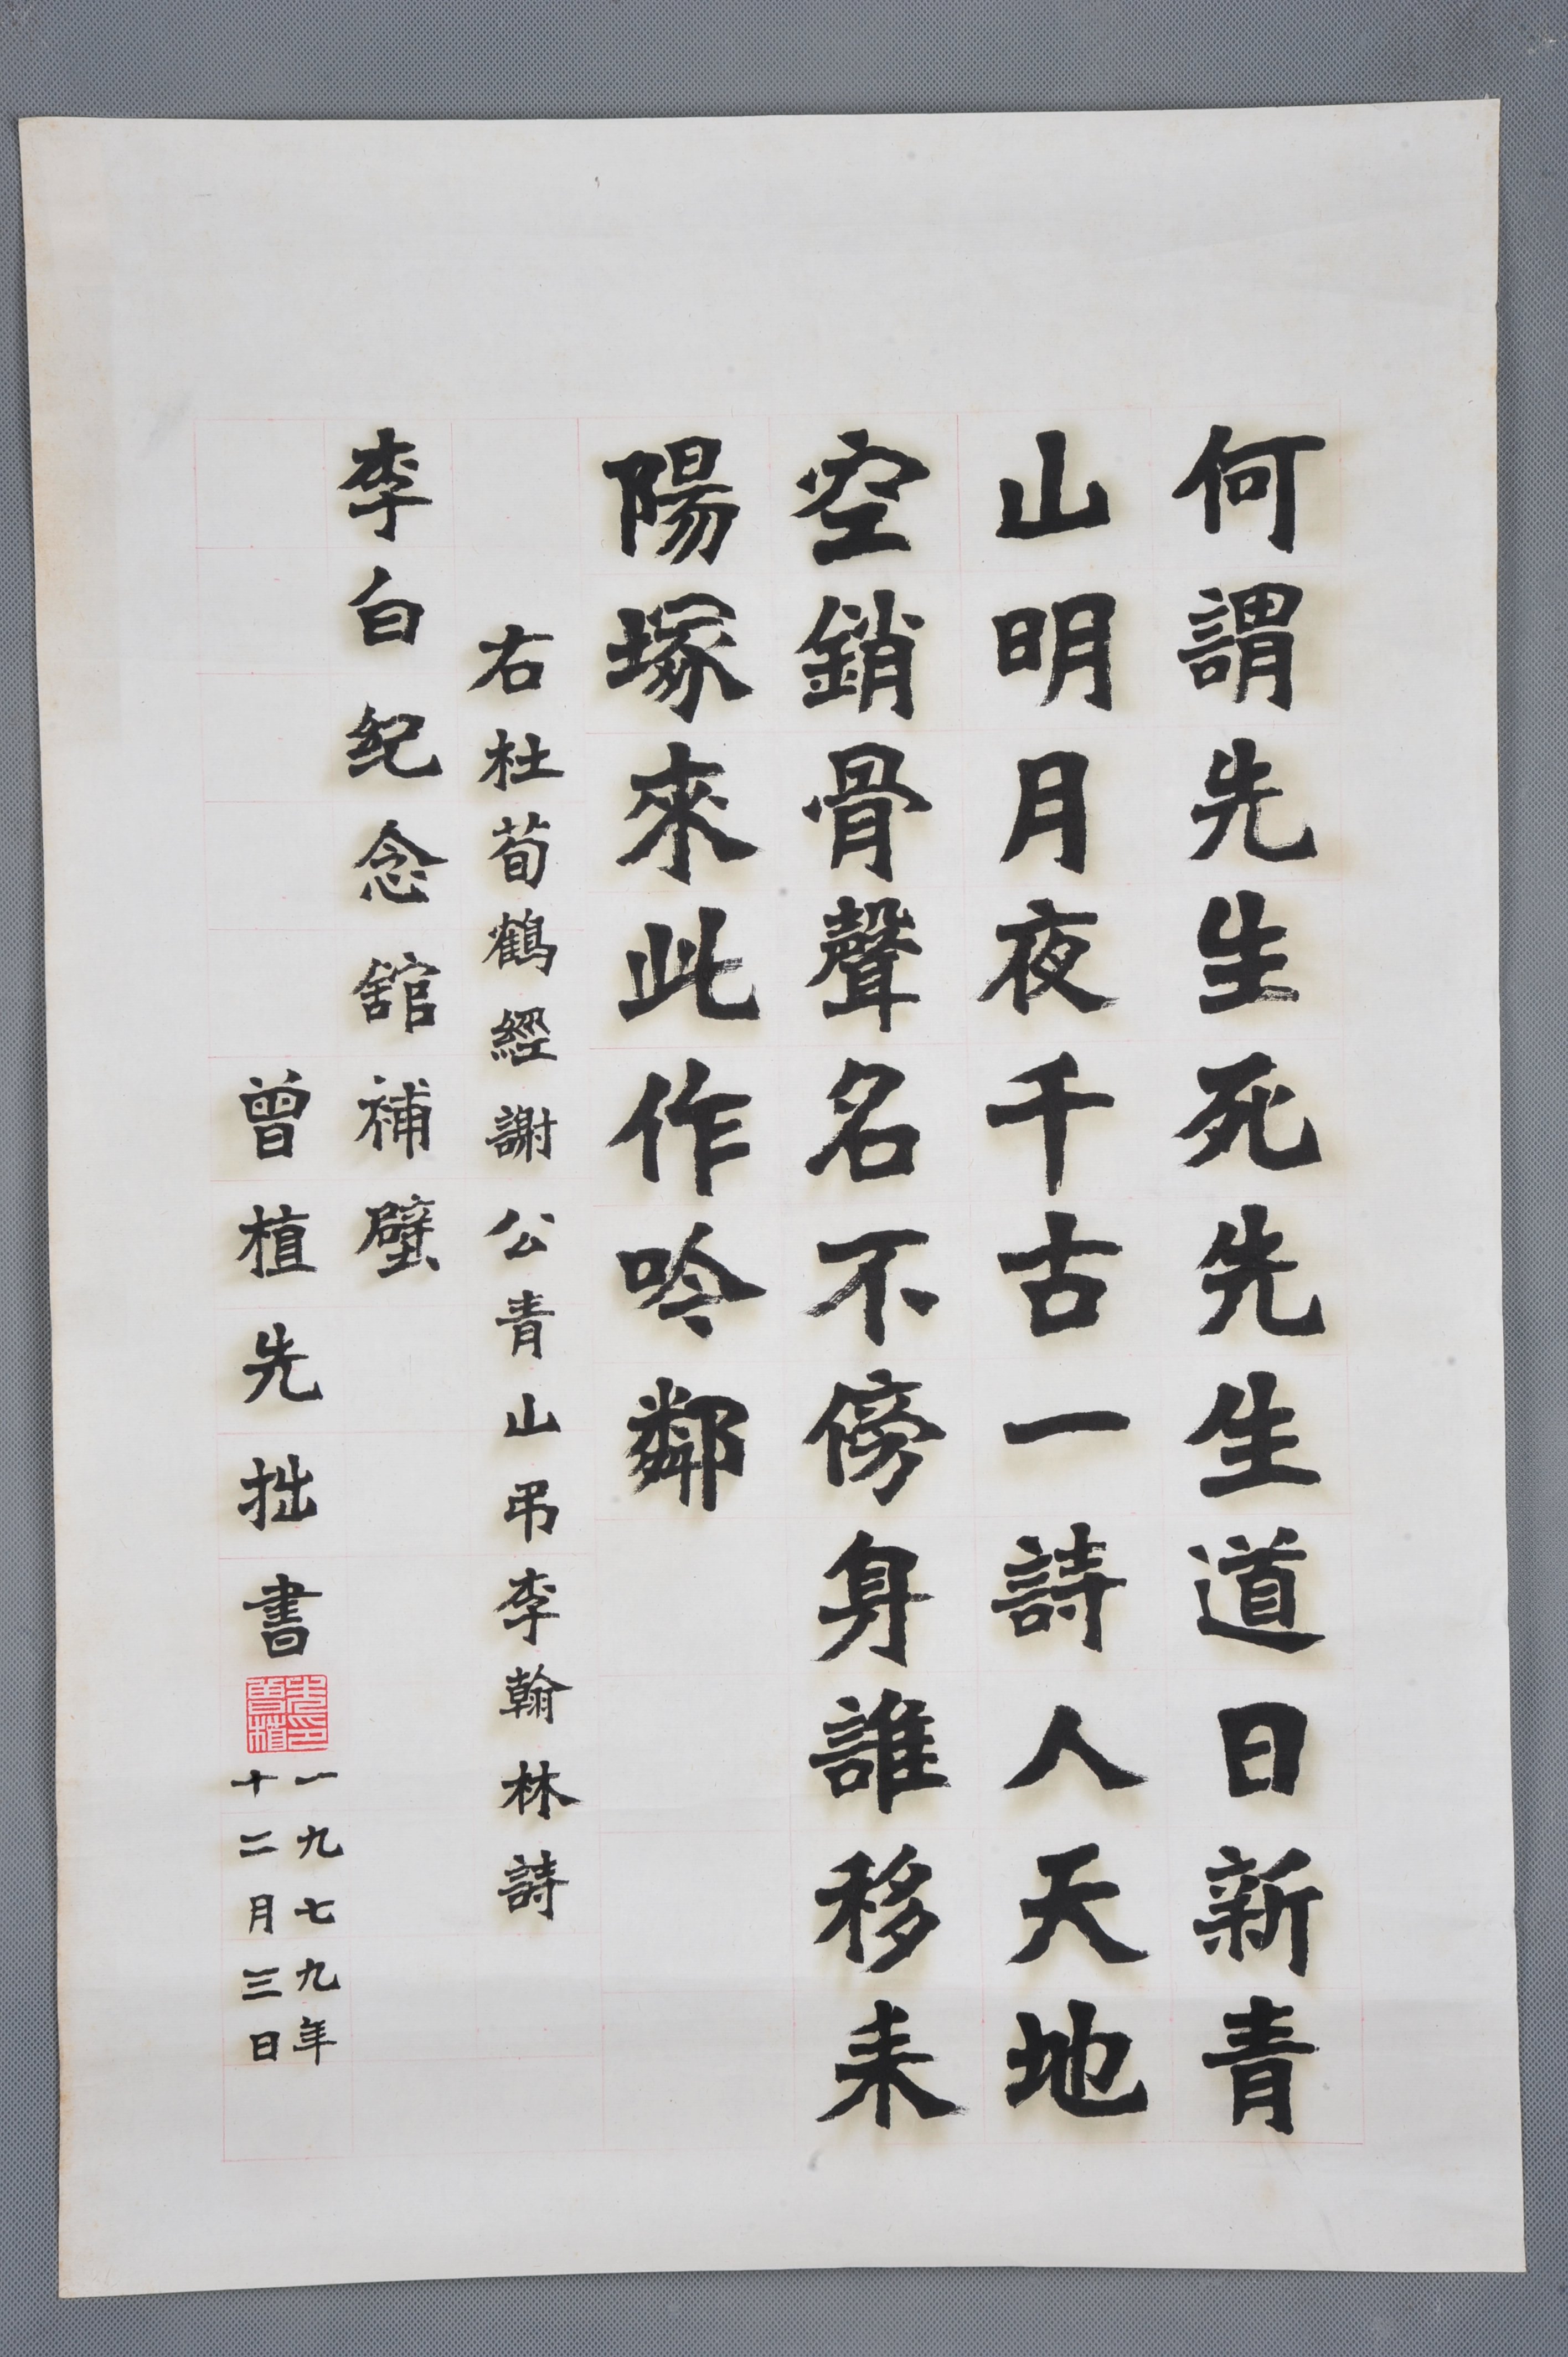 何謂先生死先生道日新青
山明月夜千古一詩人天地
空銷骨聲名不傍身誰移耒
陽塚來此作吟鄰
右杜荀鶴經謝公青山弔李翰林詩
李白纪念舘補壁
曾植先拙書
一九七九年
十二月三日